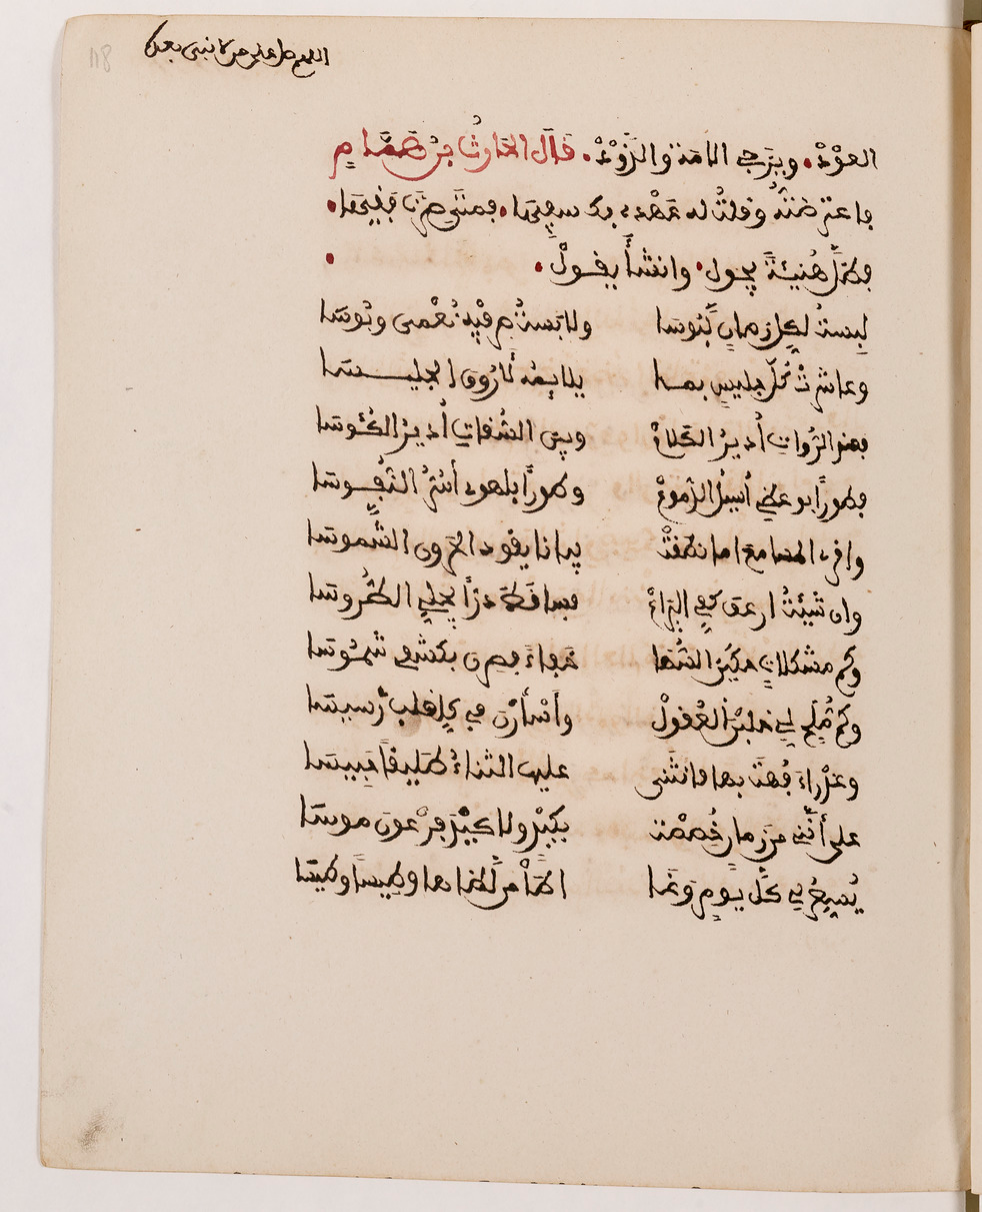 اللهم صل على من لا نبي بعده
العوْدْ. ويزجي الامة والذوْدْ. قال الحارثُ بنُ همّامٍ
فاعترضتُه وقلتُ له عهْدي بك سفيها. فمتى صرتَ فقيها.
فظلَّ هُنيئةً يجول. وانشأ يقولُ.
لبستُ لكل زمانٍ لَبُوسا ولابستُ صرفيْهِ نُعْمى وبُوسا
وعاشرتُ كلّ جليسٍ بما يلايمُه لأروق الجليسا
فعند الرُّواتِ أُديرُ الكلامْ وبين السُّقاتِ أُديرُ الكُئوسا
فطورًا بوعظي أُسيلُ الدموعْ وطورًا بلهوي أسُرُّ النُّفُوسا
واقري المسامع اما نطقتْ بيانا يقود الحرون الشَّموسا
وان شئتُ ارعف كفي اليراعْ فساقط درًّا يحلي الطُّروسا
وكم مشكلاتٍ حكيْن السُّها خفاءً فصرن بكشفي شموسا
وكم مُلَحٍ لي خلبْن العُقولْ وأسأرْن في كل قلبٍ رسيسا
وعذْراءَ فُهتُ بها فانثنى عليها الثناءُ طليقًا حبيسا
على أنّني من زماني خُصصْتْ بكيْدٍ ولا كيْدَ فرْعون موسا
يُسعِّرُ لي كلَّ يومٍ وغا اطأْ من لَظاها وطيسًا وطيسا